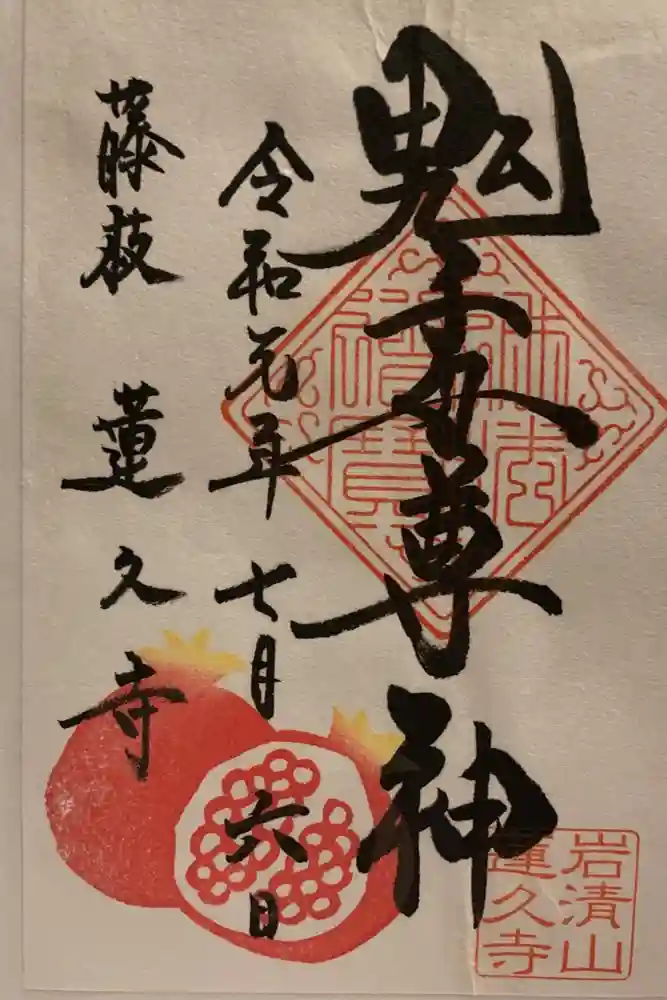 鬼子母尊神
令和元年 七月 六日
藤枝 蓮久寺
岩清山
蓮久寺